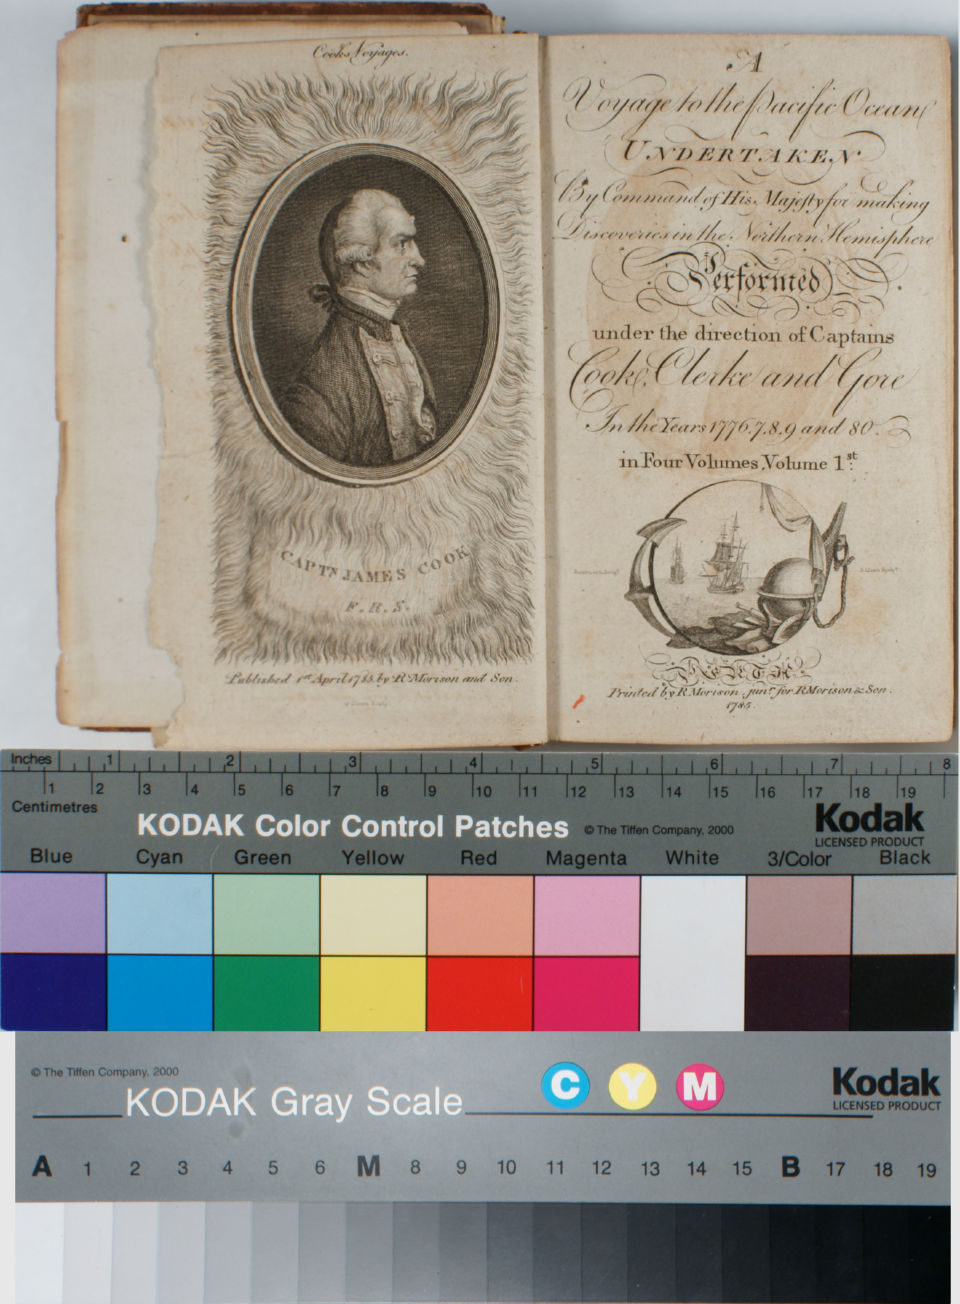 Cooks Voyages.
CAPTN JAMES COOK
F.R.S.
Published 1st April 1785 by R Morison and Son.
A
Voyage to the Pacific Ocean
UNDERTAKEN
By Command of His Majesty for making
Discoveries in the Northern Hemisphere
Performed
under the direction of Captains
Cook, Clerke and Gore
In the Years 1776.7.8.9 and 80.
in Four Volumes, Volume 1st.
PERTH
Printed by R Morison junr. for R Morison & Son.
1785.
Inches 1 2 3 4 5 6 7 8
1 2 3 4 5 6 7 8 9 10 11 12 13 14 15 16 17 18 19
Centimetres
KODAK Color Control Patches © The Tiffen Company, 2000 Kodak
LICENSED PRODUCT
Blue Cyan Green Yellow Red Magenta White 3/Color Black
© The Tiffen Company, 2000
KODAK Gray Scale C Y M Kodak
LICENSED PRODUCT
A 1 2 3 4 5 6 M 8 9 10 11 12 13 14 15 B 17 18 19